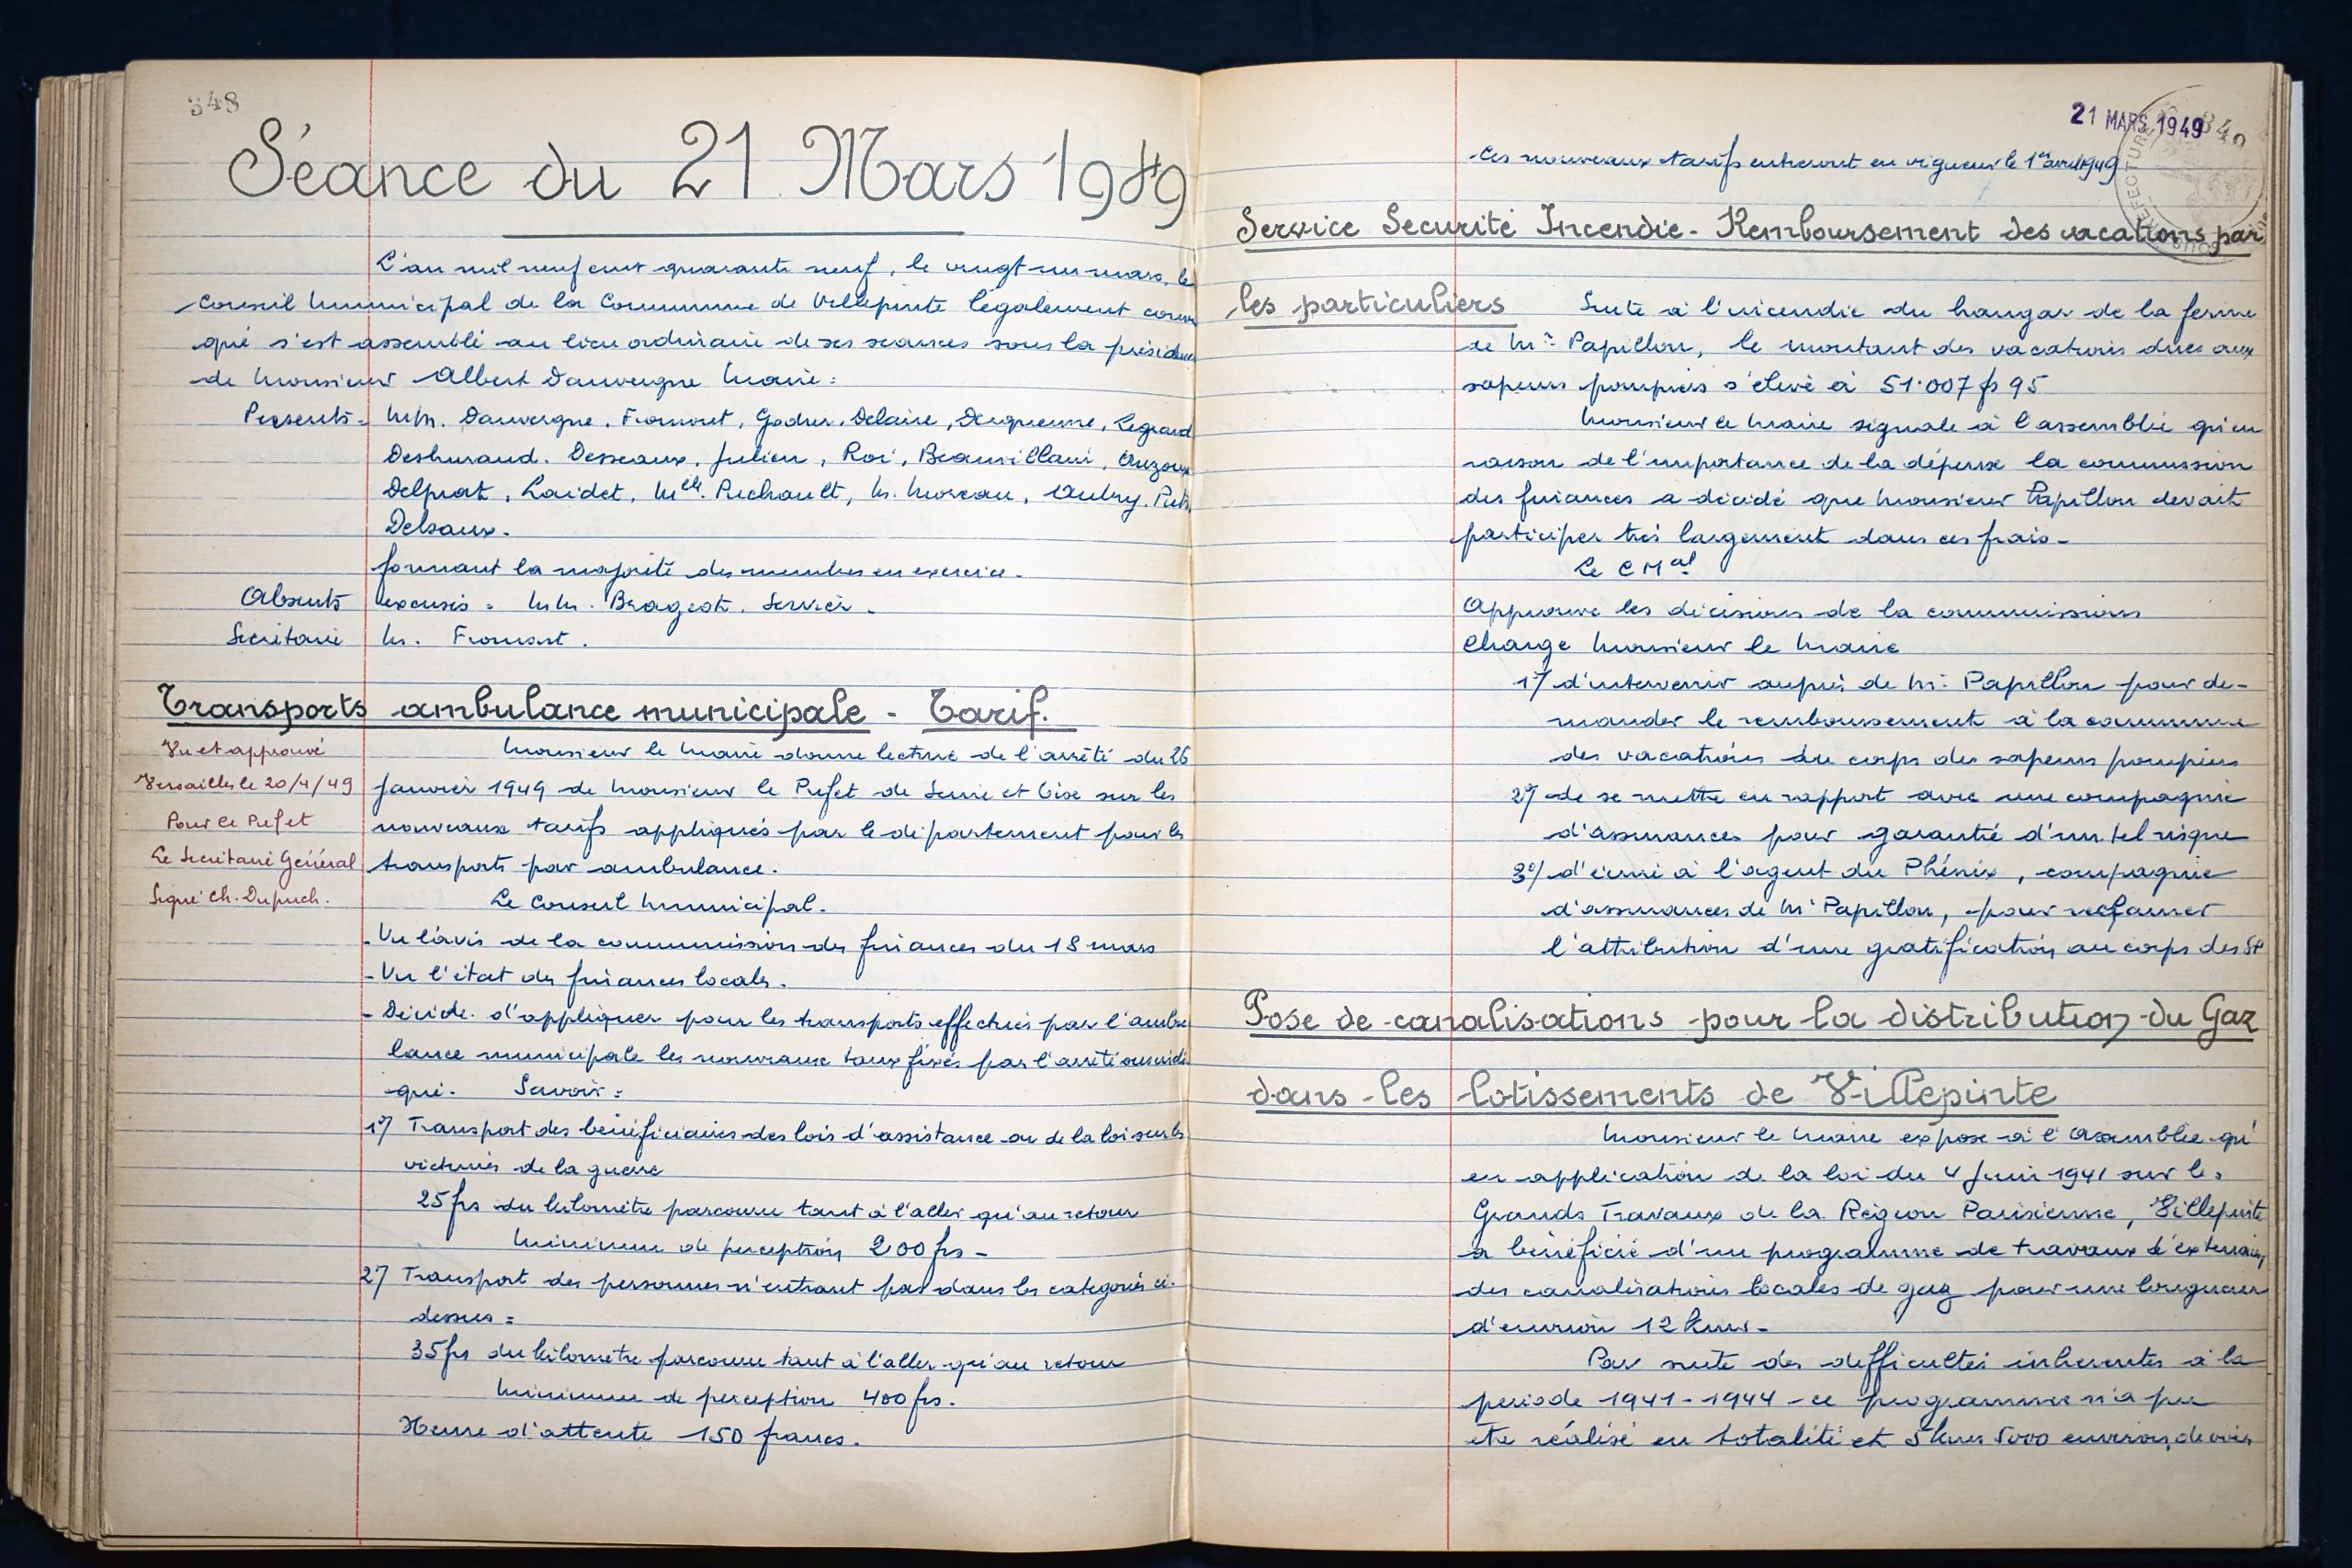 348
Séance du 21 Mars 1949
L'an mil neuf cent quarante neuf, le vingt un mars, le
Conseil Municipal de la Commune de Villepinte légalement convo
qué s'est assemblé au lieu ordinaire de ses séances sous la présidence
de Monsieur Albert Dauvergne Maire:
Présents = MM. Dauvergne, Fromont, Delaire, Duquenne, Legrand
Deshuraud. Desseaux, Julien, Roi, Beauvillain, Auzoux
Delprat, Laidet, Melle. Puchault, M. Moreau, Aubry,
Delsaux.
formant la majorité des membres en exercice.
Absents excusés = MM. Brageot, Servier.
Secrétaire M. Fromont.
Transports ambulance municipale - Tarif.
Vu et approuvé
Versailles le 20/4/49
Pour le Préfet
Le Secrétaire Général
Signé Ch. Dupuch.
Monsieur le Maire donne lecture de l'arrêté du 26
Janvier 1949 de Monsieur le Préfet de Seine et Oise sur les
nouveaux tarifs appliqués par le département pour les
transports par ambulance.
Le Conseil Municipal.
- Vu l'avis de la commission des finances du 18 mars
- Vu l'état des finances locales.
- Décide d'appliquer pour les transports effectués par l'ambu
lance municipale les nouveaux taux fixés par l'arrêté susindi
qué. Savoir =
1°/ Transport des bénéficiaires des lois d'assistance ou de la loi sur les
victimes de la guerre
25 frs du kilomètre parcouru tant à l'aller qu'au retour
Minimum de perception 200 frs -
2°/ Transport des personnes n'entrant pas dans les catégories ci-
dessus =
35 frs du kilomètre parcouru tant à l'aller qu'au retour
Minimum de perception 400 frs.
Heure d'attente 150 francs.
21 MARS 1949
349
PREFECTURE
Ces nouveaux tarifs entreront en vigueur le 1er avril 1949
Service Sécurité Incendie - Remboursement des vacations par
les particuliers
Suite à l'incendie du hangar de la ferme
de Mr Papillon, le montant des vacations dues aux
sapeurs pompiers s'élève à 51.007 fs 95
Monsieur le Maire signale à l'assemblée qu'en
raison de l'importance de la dépense la commission
des finances a décidé que Monsieur Papillon devait
participer très largement dans ces frais -
Le C Mal
Approuve les décisions de la commissions
Charge Monsieur le Maire
1°/ d'intervenir auprès de Mr Papillon pour de-
mander le remboursement à la commune
des vacations du corps des sapeurs pompiers
2°/ de se mettre en rapport avec une compagnie
d'assurances pour garantie d'un tel risque
3°/ d'écrire à l'agent du Phénix, compagnie
d'assurances de Mr Papillon, pour réclamer
l'attribution d'une gratification au corps des SP
Pose de canalisations pour la distribution du Gaz
dans les lotissements de Villepinte
Monsieur le Maire expose à l'Assemblée qu'
en application de la loi du 4 Juin 1941 sur les
Grands Travaux de la Région Parisienne, Villepinte
a bénéficié d'un programme de travaux d'extension
des canalisations locales de gaz pour une longueur
d'environ 12 kms -
Par suite des difficultés inhérentes à la
période 1941-1944 - ce programme n'a pu
être réalisé en totalité et 5 kms environ de voies